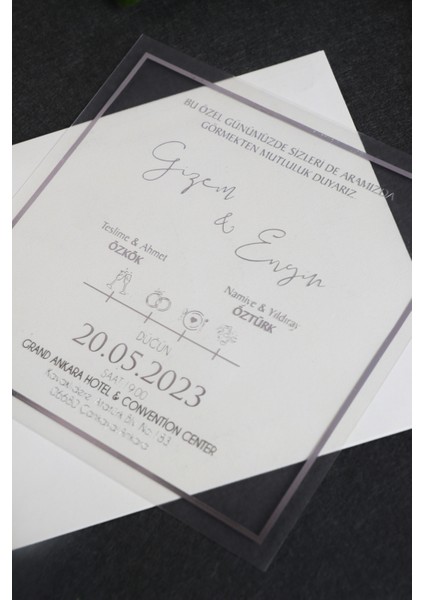 BU ÖZEL GÜNÜMÜZDE SİZLERİ DE ARAMIZDA
GÖRMEKTEN MUTLULUK DUYARIZ
Gizem
&
Engin
Teslime & Ahmet
ÖZKÖK
Namiye & Yıldıray
ÖZTÜRK
DÜĞÜN
20.05.2023
SAAT 19:00
GRAND ANKARA HOTEL & CONVENTION CENTER
Kavaklıdere, Atatürk Blv No:183
06680 Çankaya/Ankara